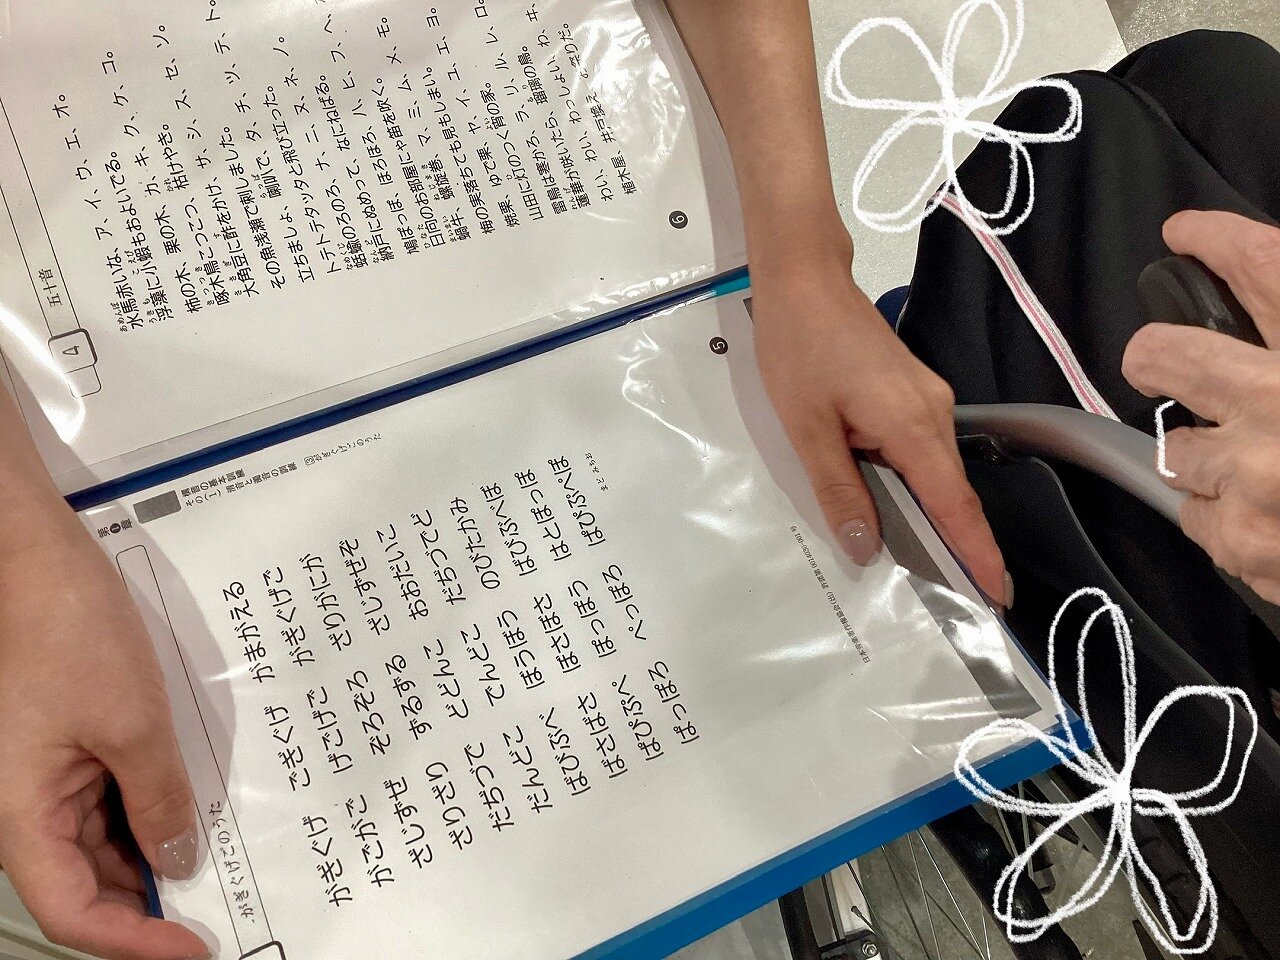 4
五十音
水馬赤いな、ア、イ、ウ、エ、オ。
浮藻に小蝦もおよいでる。
柿の木、栗の木、カ、キ、ク、ケ、コ。
啄木鳥こつこつ、枯けやき。
大角豆に酢をかけ、サ、シ、ス、セ、ソ。
その魚浅瀬で刺しました。
立ちましょ、喇叭で、タ、チ、ツ、テ、ト。
トテトテタッタと飛び立った。
蛞蝓のろのろ、ナ、ニ、ヌ、ネ、ノ。
納戸にぬめって、なにねばる。
鳩ぽっぽ、ほろほろ、ハ、ヒ、フ、ヘ、
日向のお部屋にゃ笛を吹く。
蝸牛、螺旋巻、マ、ミ、ム、メ、モ。
梅の実落ちても見もしまい。
焼栗、ゆで栗、ヤ、イ、ユ、エ、ヨ。
山田に灯のつく宵の家。
雷鳥は寒かろ、ラ、リ、ル、レ、ロ。
蓮華が咲いたら、瑠璃の鳥。
わい、わい、わっしょい、わ、ヰ、
植木屋、井戸換え 祭りだ。
6
第1章
構音の基本訓練
その(1) 清音と濁音の訓練
がぎぐげごのうた
がぎぐげごのうた
がぎぐげ ごぎぐげ がまがえる
がごがご げごげご がぎぐげご
ざじずぜ ぞろぞろ ざりがにが
ざりざり ずるずる ざじずぜぞ
だぢづで どどんこ おおだいこ
だんどこ でんどこ だぢづでど
ばびぶべ ぼうぼう のびたかみ
ばさばさ ぼさぼさ ばびぶべぼ
ぱぴぷぺ ぽっぽう はとぽっぽ
ぱっぽろ ぺっぽろ ぱぴぷぺぽ
まど みちお
5